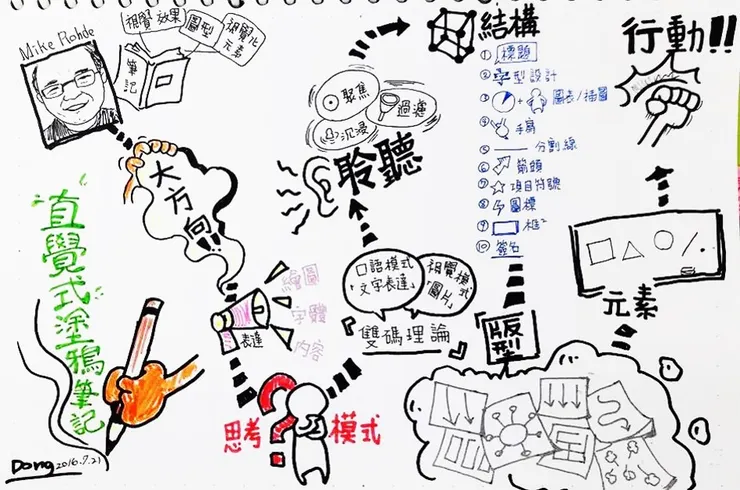 Mike Rohde
視覺效果
圖型
視覺化
元素
筆記
大方向!!
“直覺式塗鴉筆記”
Dong 2016.7.21
表達
繪圖
字體
內容
思考?模式
『雙碼理論』
口語模式
「文字表達」
視覺模式
「圖片」
聆聽
聚焦
過濾
沉浸
結構
① 標題
② 字型設計
③ + 圖表/插圖
④ 手寫
⑤ 分割線
⑥ 箭頭
⑦ 項目符號
⑧ 圖標
⑨ 框
⑩ 簽名
『版型』
元素
行動!!